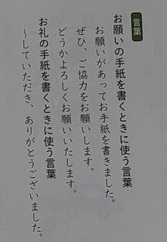 言葉
お願いの手紙を書くときに使う言葉
お願いがあってお手紙を書きました。
ぜひ、ご協力をお願いします。
どうかよろしくお願いいたします。
お礼の手紙を書くときに使う言葉
〜していただき、ありがとうございました。